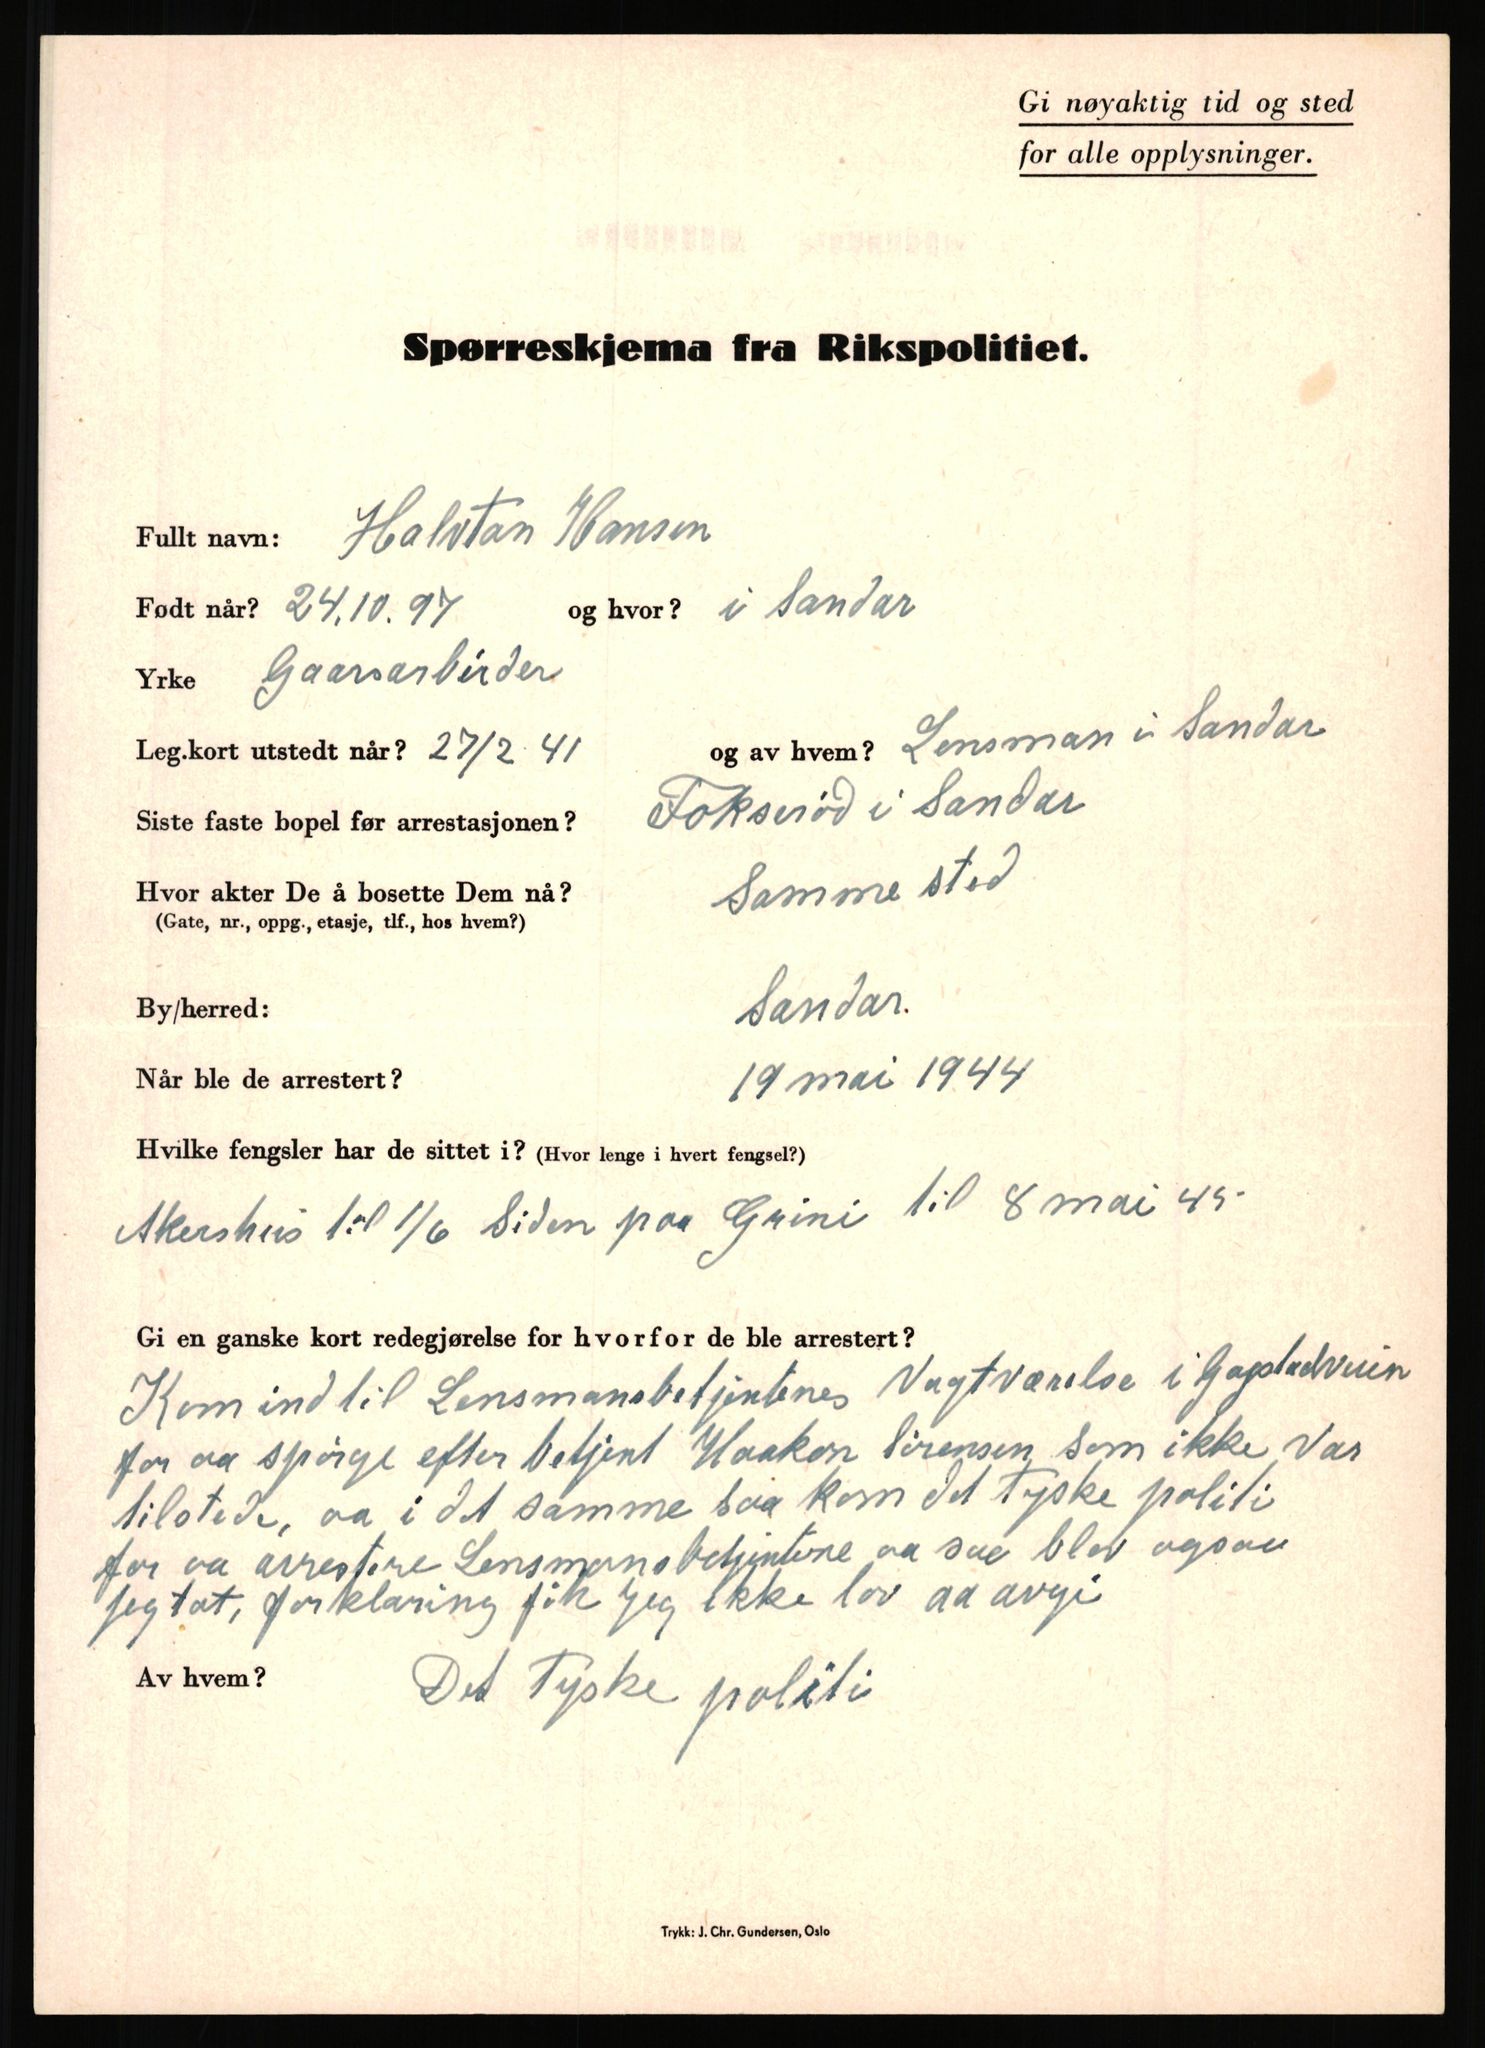 Gi nøyaktig tid og sted
for alle opplysninger.
Spørreskjema fra Rikspolitiet.
Fullt navn: Halvtan Hansen
Født når? 24.10.97 og hvor? i Sandar
Yrke Gaarsarbeider
Leg.kort utstedt når? 27/2 41 og av hvem? Lensman i Sandar
Siste faste bopel før arrestasjonen? Fokserød i Sandar
Hvor akter De å bosette Dem nå? Samme sted
(Gate, nr., oppg., etasje, tlf., hos hvem?)
By/herred: Sandar.
Når ble de arrestert? 19 mai 1944
Hvilke fengsler har de sittet i? (Hvor lenge i hvert fengsel?)
Akershus til 1/6 Siden paa Grini til 8 mai 45
Gi en ganske kort redegjørelse for hvorfor de ble arrestert?
Kom ind til Lensmansbetjentenes Vagtværelse i
for aa spørge efter betjent Haakon Sørensen som ikke var
tilstede, aa i det samme saa kom det Tyske politi
for aa arrestere Lensmansbetjentene aa saa blev ogsaa
jeg tat, forklaring fik jeg ikke lov aa avgi
Av hvem? Det Tyske politi
Trykk: J. Chr. Gundersen, Oslo